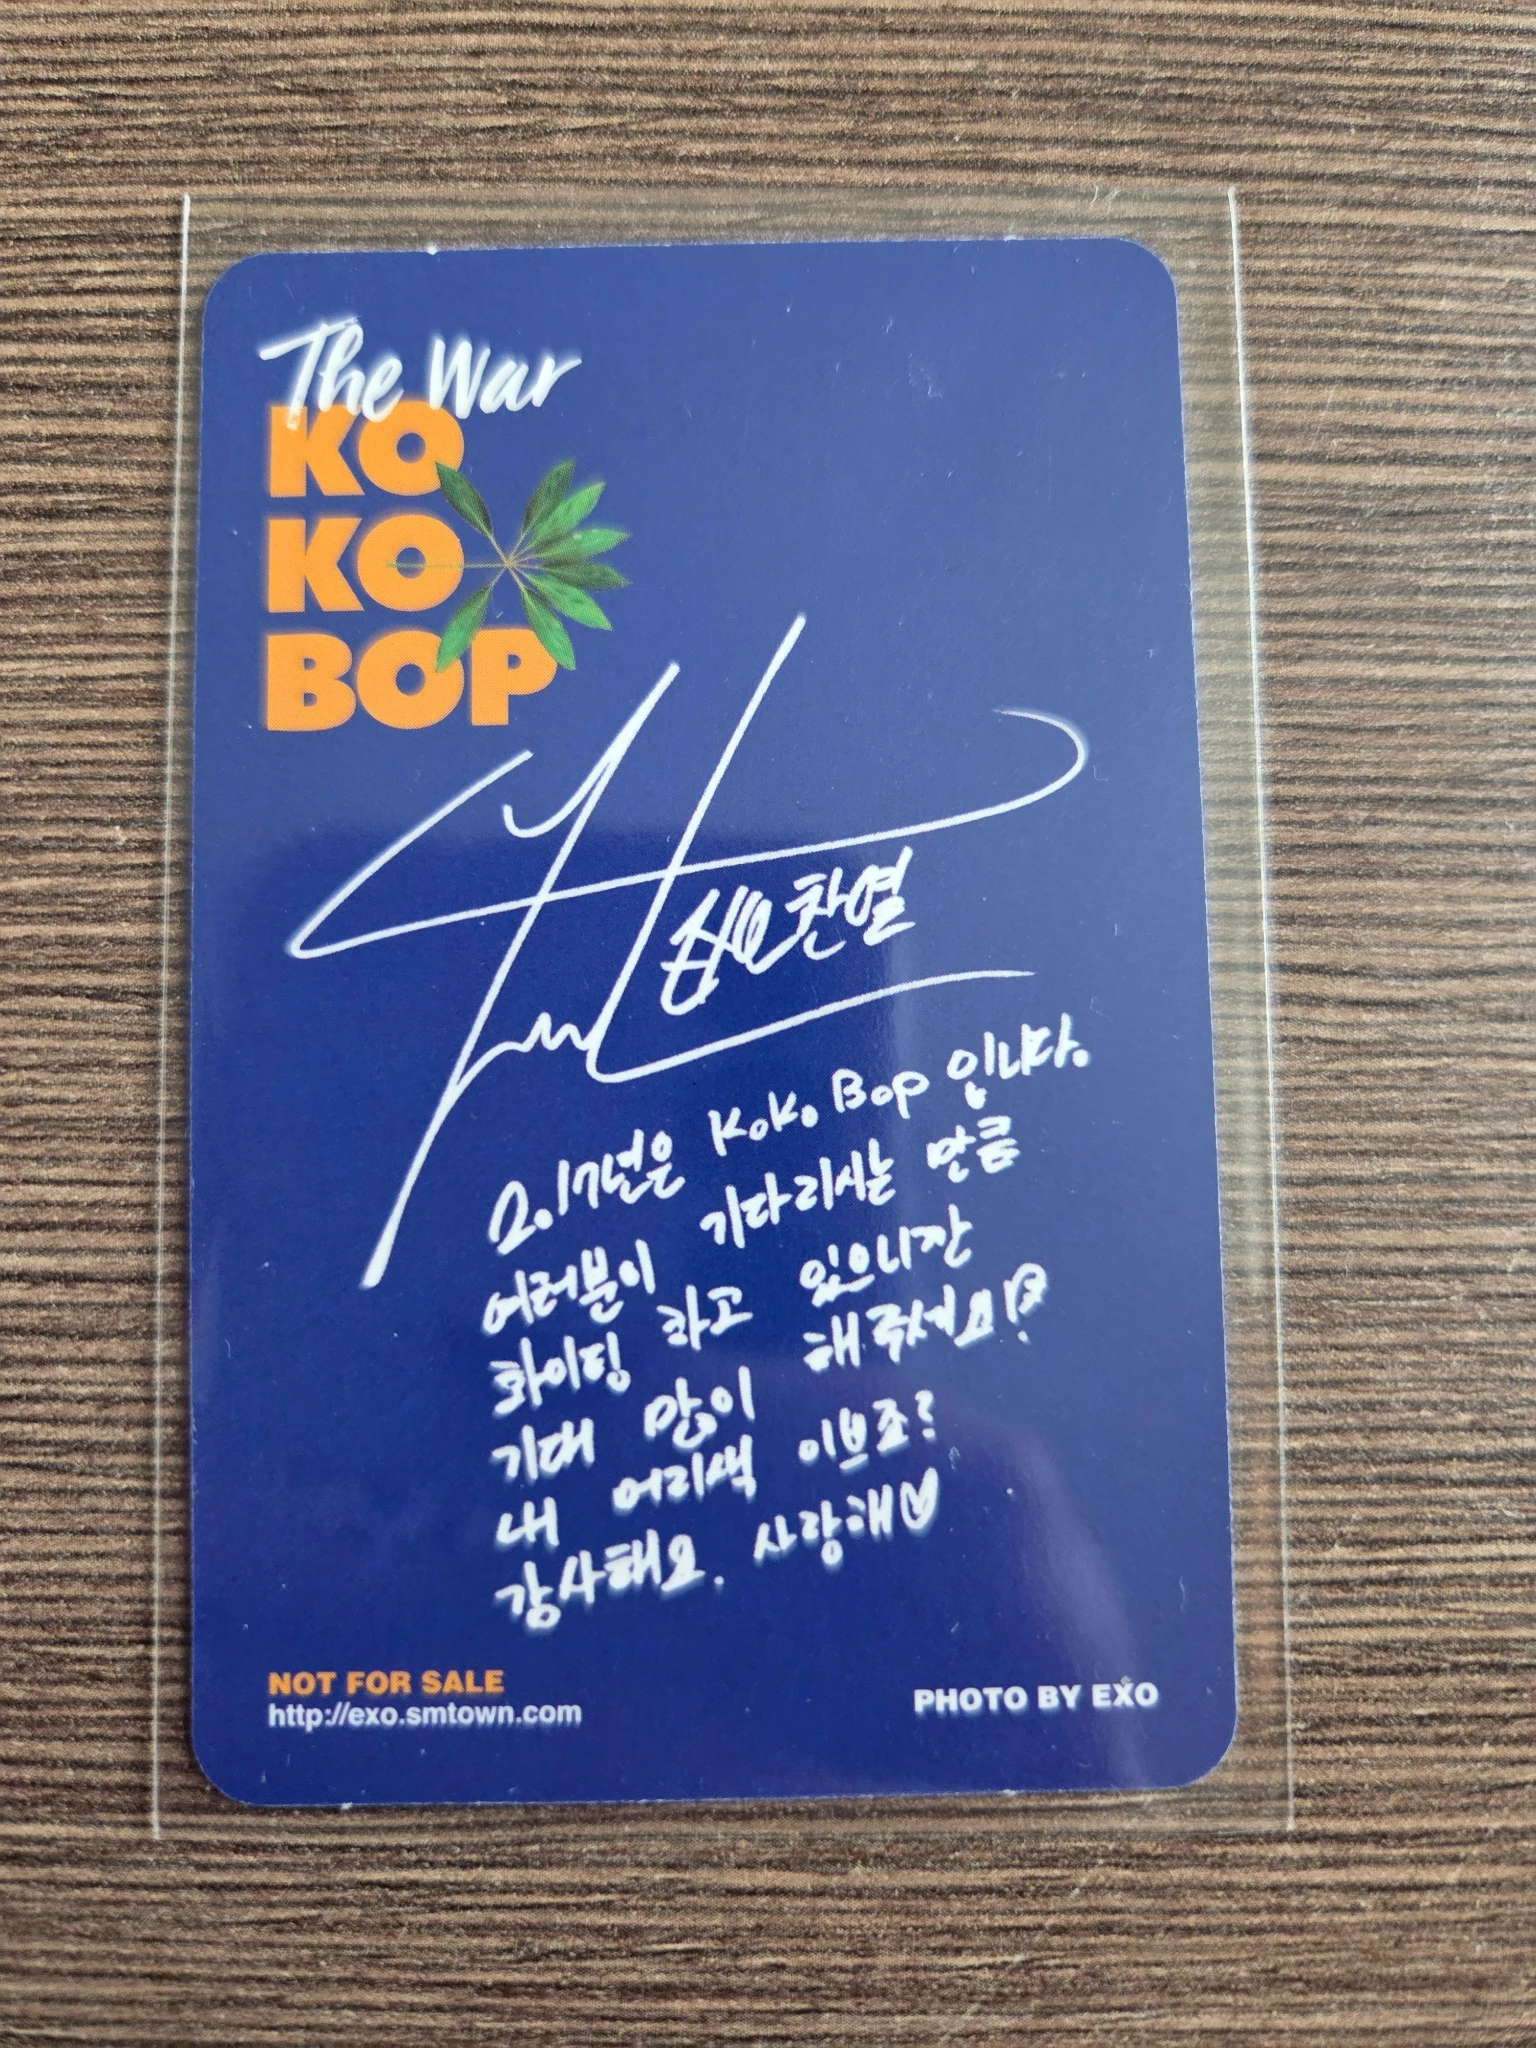 The War
KO
KO
BOP
찬열
2017년은 KoKo Bop 입니다.
여러분이 기다리시는 만큼
화이팅 하고 있으니깐
기대 많이 해주세요!?
내 머리색 이쁘죠?
감사해요. 사랑해♡
NOT FOR SALE
http://exo.smtown.com
PHOTO BY EXO